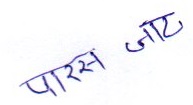 पारस जाट